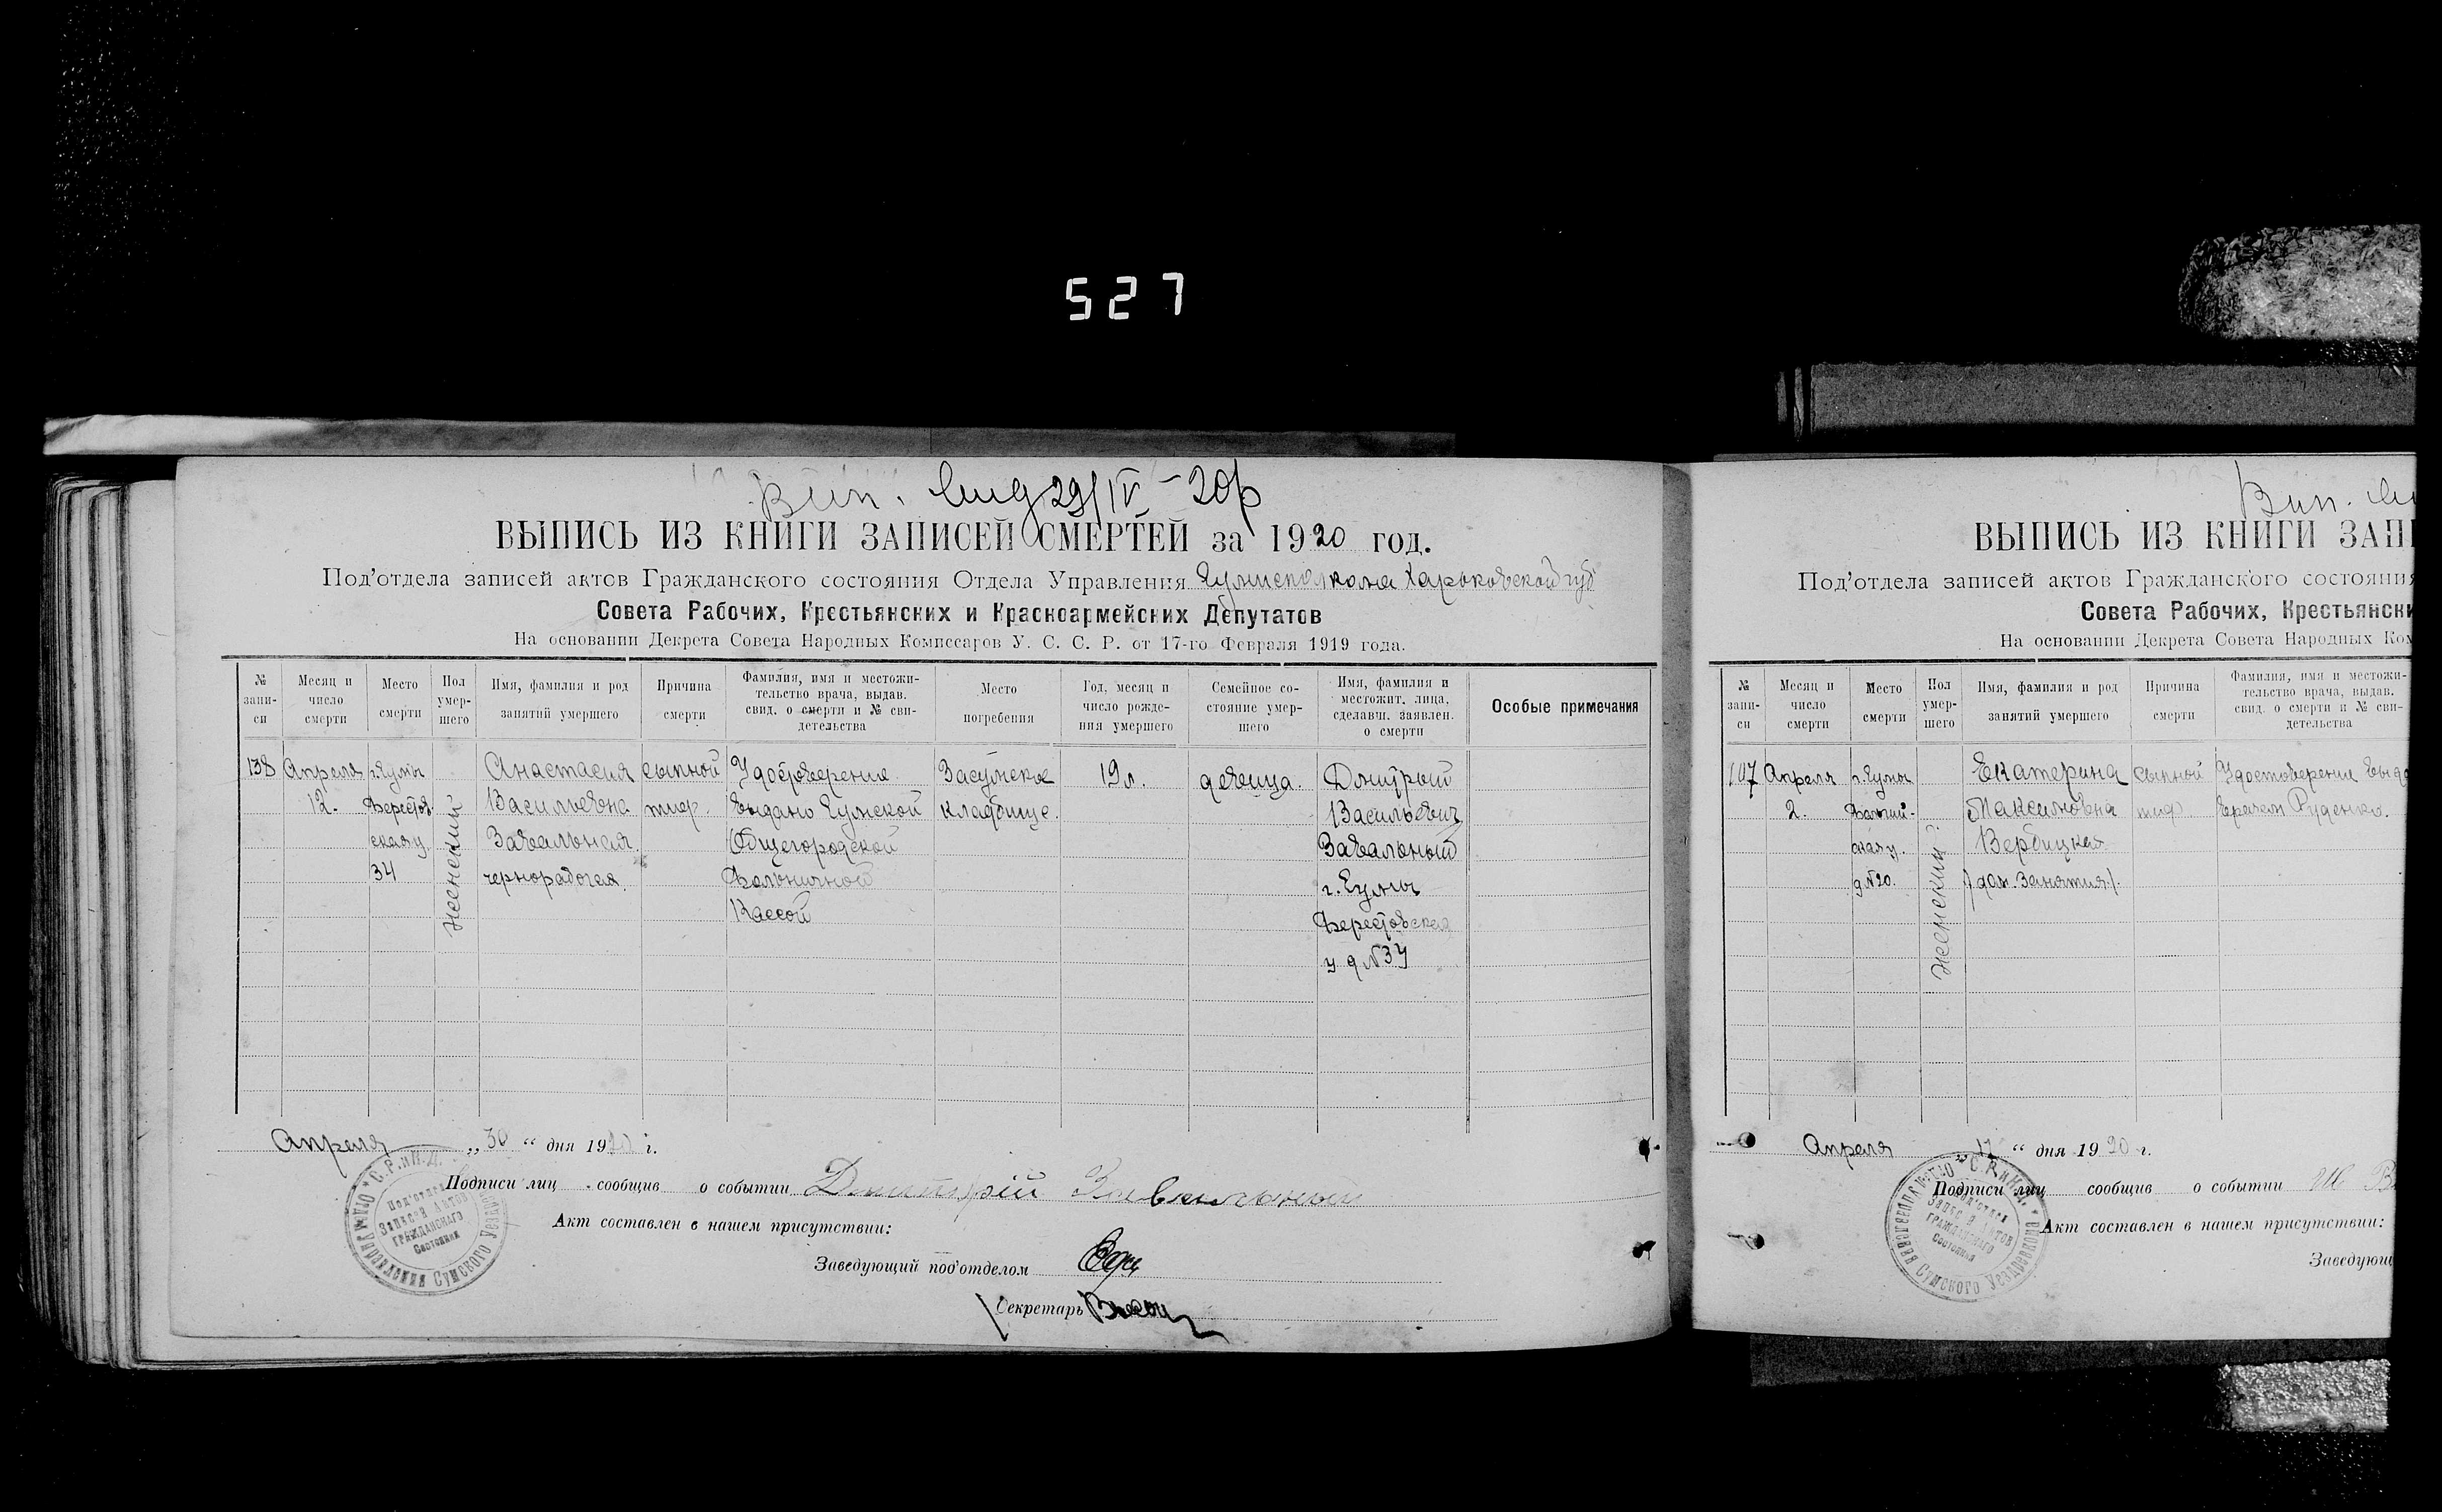 527
ВЫПИСЬ ИЗ КНИГИ ЗАПИСЕЙ СМЕРТЕЙ за 1920 год.
Под'отдела записей актов Гражданского состояния Отдела Управления Харьковской губ
Совета Рабочих, Крестьянских и Красноармейских Депутатов
На основании Декрета Совета Народных Комиссаров У. С. С. Р. от 17-го Февраля 1919 года.
№ запи-си
Месяц и число смерти
Место смерти
Пол умер-шего
Имя, фамилия и род занятий умершего
Причина смерти
Фамилия, имя и местожи-тельство врача, выдав. свид. о смерти и № сви-детельства
Место погребения
Год, месяц и число рожде-ния умершего
Семейное со-стояние умер-шего
Имя, фамилия и местожит. лица, сделавш. заявлен. о смерти
Особые примечания
138 Апреля г. Сумы Анастасия сыпной Удостоверение Засумское 19 л. девица. Дмитрий
12. Берестов Васильевна тиф. выдано Сумской кладбище. Васильевич
ская у. Завальная Общегородской Завальный
34 чернорабочая. Больничной г. Сумы
женский Кассой Берестовская
у д № 34
Апреля „30“ дня 1920 г.
Подписи лиц сообщив о событии Дмитрій Завальный
Акт составлен в нашем присутствии:
Заведующий под'отделом
Секретарь
С.Р. и К.Д.
Управления Сумского
Под'отдел
Записи Актов
Гражданскаго
Состояния
ВЫПИСЬ ИЗ КНИГИ ЗАП
Под'отдела записей актов Гражданского состояния
Совета Рабочих, Крестьянски
На основании Декрета Совета Народных Ком
№ запи-си
Месяц и число смерти
Место смерти
Пол умер-шего
Имя, фамилия и род занятий умершего
Причина смерти
Фамилия, имя и местожи-тельство врача, выдав. свид. о смерти и № сви-детельства
107 Апреля г. Сумы Екатерина сыпной Удостоверение выда
2. Максимовна тиф. врачем Руденко.
ская у. Вербицкая
д № 20. /дом. занятия/.
женский
Апреля „17“ дня 1920 г.
Подписи лиц сообщив о событии
Акт составлен в нашем присутствии:
Заведующ
Сумского
Под'отдел
Записи Актов
Гражданскаго
Состояния